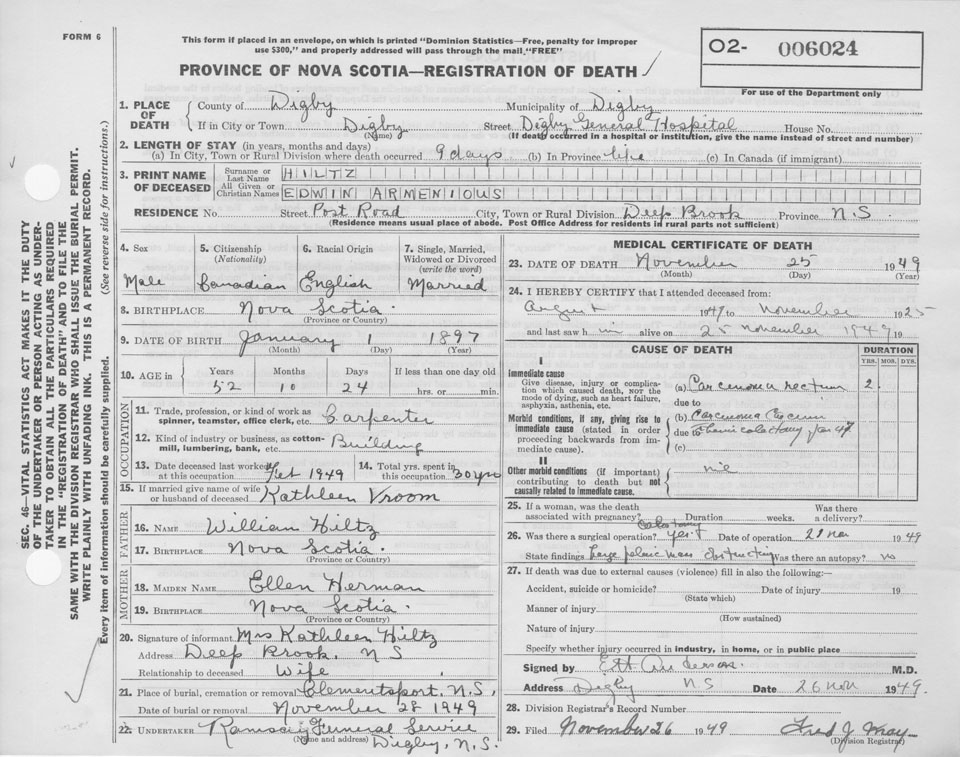 FORM 6
This form if placed in an envelope, on which is printed "Dominion Statistics—Free, penalty for improper
use $300," and properly addressed will pass through the mail "FREE"
O2- 006024
For use of the Department only
PROVINCE OF NOVA SCOTIA—REGISTRATION OF DEATH
1. PLACE OF DEATH County of Digby Municipality of Digby
If in City or Town Digby Street Digby General Hospital House No.
(Name) (If death occurred in a hospital or institution, give the name instead of street and number)
2. LENGTH OF STAY (in years, months and days)
(a) In City, Town or Rural Division where death occurred 9 days (b) In Province life (c) In Canada (if immigrant)
3. PRINT NAME OF DECEASED Surname or Last Name HILTZ
All Given or Christian Names EDWIN ARMENIOUS
RESIDENCE No. Street Post Road City, Town or Rural Division Deep Brook Province N.S.
(Residence means usual place of abode. Post Office Address for residents in rural parts not sufficient)
4. Sex 5. Citizenship (Nationality) 6. Racial Origin 7. Single, Married, Widowed or Divorced (write the word)
Male Canadian English Married
8. BIRTHPLACE Nova Scotia
(Province or Country)
9. DATE OF BIRTH January 1 1897
(Month) (Day) (Year)
10. AGE in Years Months Days If less than one day old
52 10 24 hrs. or min.
OCCUPATION
11. Trade, profession, or kind of work as spinner, teamster, office clerk, etc. Carpenter
12. Kind of industry or business, as cotton-mill, lumbering, bank, etc. Building
13. Date deceased last worked at this occupation Oct 1949 14. Total yrs. spent in this occupation 30 yrs
15. If married give name of wife or husband of deceased Kathleen Vroom
FATHER
16. NAME William Hiltz
17. BIRTHPLACE Nova Scotia.
(Province or Country)
MOTHER
18. MAIDEN NAME Ellen Herman
19. BIRTHPLACE Nova Scotia.
(Province or Country)
20. Signature of informant Mrs Kathleen Hiltz
Address Deep Brook, N S
Relationship to deceased Wife
21. Place of burial, cremation or removal Clementsport, N.S.,
Date of burial or removal November 28 1949
22. UNDERTAKER Ramsay Funeral Service
(Name and address) Digby, N.S.
MEDICAL CERTIFICATE OF DEATH
23. DATE OF DEATH November 25 1949
(Month) (Day) (Year)
24. I HEREBY CERTIFY that I attended deceased from:
August 1947 to November 1925
and last saw h im alive on 25 november 1949 19
CAUSE OF DEATH DURATION
YRS. MOS. DYS.
I
Immediate cause
Give disease, injury or complication which caused death, NOT the mode of dying, such as heart failure, asphyxia, asthenia, etc.
(a) Carcinoma rectum 2
due to
Morbid conditions, if any, giving rise to immediate cause (stated in order proceeding backwards from immediate cause).
(b) Carcinoma
due to
(c)
II
Other morbid conditions (if important) contributing to death but not causally related to immediate cause.
nil
25. If a woman, was the death associated with pregnancy? Duration weeks. Was there a delivery?
26. Was there a surgical operation? yes Colostomy Date of operation 21 nov 1949
State findings large pelvic mass obstructing Was there an autopsy? no
27. If death was due to external causes (violence) fill in also the following:—
Accident, suicide or homicide? Date of injury 19
(State which)
Manner of injury
(How sustained)
Nature of injury
Specify whether injury occurred in industry, in home, or in public place
Signed by M.D.
Address Digby N S Date 26 nov 1949.
28. Division Registrar's Record Number
29. Filed November 26 1949 Fred J. May
(Division Registrar)
SEC. 46—VITAL STATISTICS ACT MAKES IT THE DUTY
OF THE UNDERTAKER OR PERSON ACTING AS UNDER-
TAKER TO OBTAIN ALL THE PARTICULARS REQUIRED
IN THE "REGISTRATION OF DEATH" AND TO FILE THE
SAME WITH THE DIVISION REGISTRAR WHO SHALL ISSUE THE BURIAL PERMIT.
WRITE PLAINLY WITH UNFADING INK. THIS IS A PERMANENT RECORD.
Every item of information should be carefully supplied. (See reverse side for instructions.)